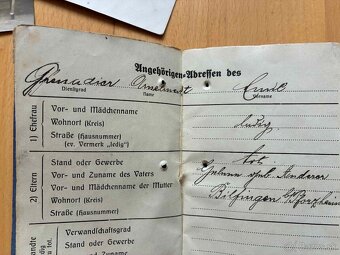 Angehörigen-Adressen des
Grenadier Emil
Dienstgrad Name Vorname
1) Ehefrau
Vor- und Mädchenname
Wohnort (Kreis) ledig.
Straße (Hausnummer)
(ev. Vermerk „ledig")
2) Eltern
Stand oder Gewerbe tot.
Vor- und Zuname des Vaters
Vor- und Mädchenname der Mutter
Wohnort (Kreis) Bilfingen b/Pforzheim
Straße (Hausnummer)
Verwandtschaftsgrad
Stand oder Gewerbe
und Zuname